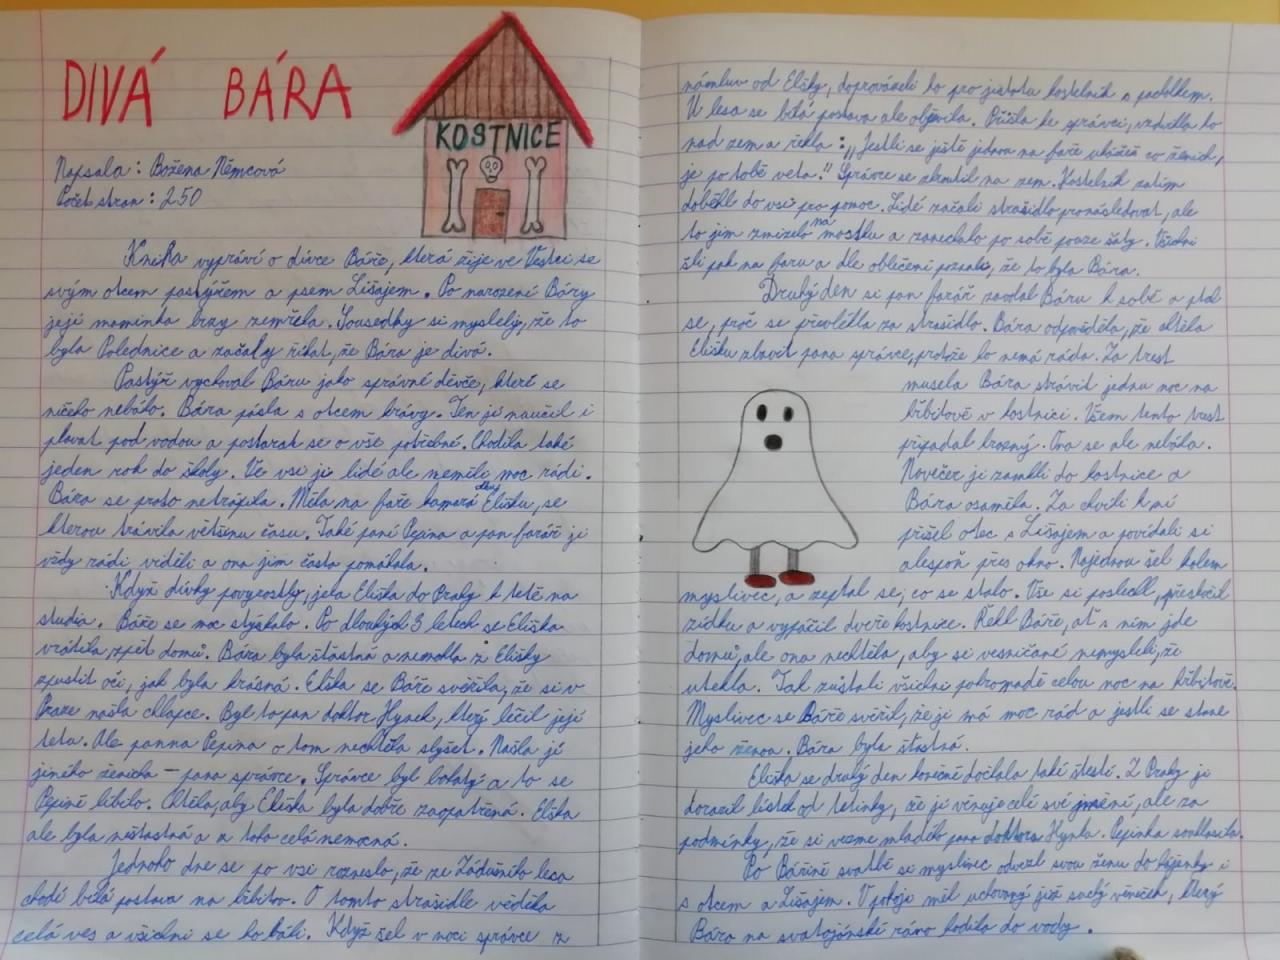 DIVÁ BÁRA
KOSTNICE
Napsala : Božena Němcová
Počet stran : 250
Kniha vypráví o dívce Báře, která žije ve Vestci se
svým otcem pastýřem a psem Lišajem. Po narození Báry
její maminka brzy zemřela. Sousedky si myslely, že to
byla Polednice a začaly říkat, že Bára je divá.
Pastýř vychoval Báru jako správné děvče, které se
ničeho nebálo. Bára pásla s otcem krávy. Ten ji naučil i
plavat pod vodou a postarat se o vše potřebné. Chodila také
jeden rok do školy. Ve vsi ji lidé ale neměli moc rádi.
Bára se proto netrápila. Měla na faře kamarádku Elišku, se
kterou trávila většinu času. Také paní Pepina a pan farář ji
vždy rádi viděli a ona jim často pomáhala.
Když dívky povyrostly, jela Eliška do Prahy k tetě na
studia. Báře se moc stýskalo. Po dlouhých 3 letech se Eliška
vrátila zpět domů. Bára byla šťastná a nemohla z Elišky
spustit oči, jak byla krásná. Eliška se Báře svěřila, že si v
Praze našla chlapce. Byl to pan doktor Hynek, který léčil její
tetu. Ale panna Pepina o tom nechtěla slyšet. Našla jí
jiného ženicha – pana správce. Správce byl bohatý a to se
Pepině líbilo. Chtěla, aby Eliška byla dobře zaopatřená. Eliška
ale byla nešťastná a z toho celá nemocná.
Jednoho dne se po vsi rozneslo, že ze Zádušního lesa
chodí bílá postava na hřbitov. O tomto strašidle věděla
celá ves a všichni se ho báli. Když šel v noci správce z
námluv od Elišky, doprovázeli ho pro jistotu kostelník s pacholkem.
U lesa se bílá postava ale objevila. Přišla ke správci, vzdvihla ho
nad zem a řekla : „Jestli se ještě jednou na faře ukážeš co ženich,
je po tobě veta." Správce se zhroutil na zem. Kostelník zatím
doběhl do vsi pro pomoc. Lidé začali strašidlo pronásledovat, ale
to jim zmizelo na mostku a zanechalo po sobě pouze šaty. Všichni
šli pak na faru a dle oblečení poznali, že to byla Bára.
Druhý den si pan farář zavolal Báru k sobě a ptal
se, proč se převlékla za strašidlo. Bára odpověděla, že chtěla
Elišku zbavit pana správce, protože ho nemá ráda. Za trest
musela Bára strávit jednu noc na
hřbitově v kostnici. Všem tento trest
připadal hrozný. Ona se ale nebála.
Navečer ji zamkli do kostnice a
Bára osaměla. Za chvíli k ní
přišel otec s Lišajem a povídali si
alespoň přes okno. Najednou šel kolem
myslivec, a zeptal se, co se stalo. Vše si poslechl, přeskočil
zídku a vypáčil dveře kostnice. Řekl Báře, ať s ním jde
domů, ale ona nechtěla, aby si vesničané nemysleli, že
utekla. Tak zůstali všichni pohromadě celou noc na hřbitově.
Myslivec se Báře svěřil, že ji má moc rád a jestli se stane
jeho ženou. Bára byla šťastná.
Eliška se druhý den konečně dočkala také štěstí. Z Prahy jí
dorazil lístek od tetinky, že jí věnuje celé své jmění, ale za
podmínky, že si vezme mladého pana doktora Hynka. Pepinka souhlasila.
Po Bářině svatbě si myslivec odvezl svou ženu do hájenky i
s otcem a Lišajem. V pokoji měl uchovaný již suchý věneček, který
Bára na svatojánské ráno hodila do vody.